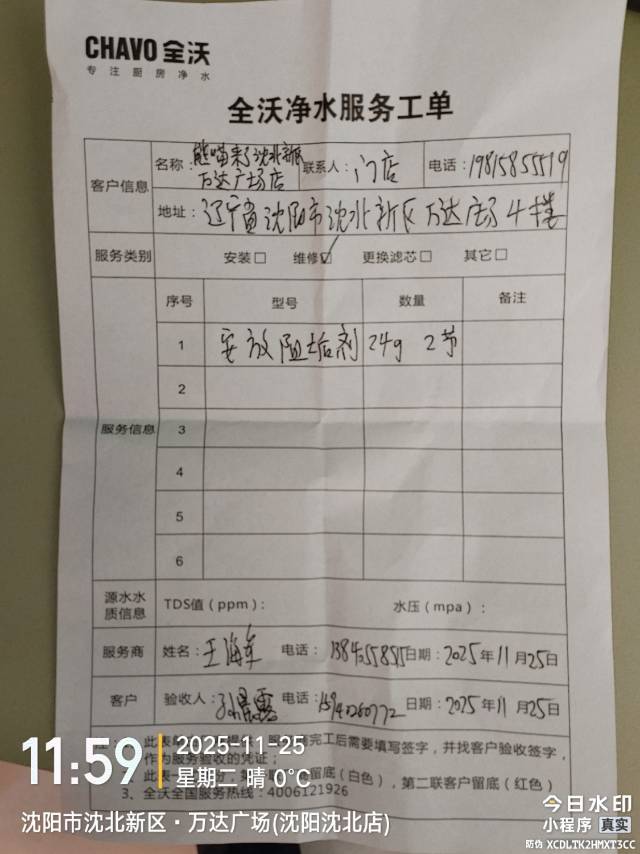 CHAVO 全沃
专注厨房净水
全沃净水服务工单
客户信息
名称：熊喵来了沈北新区万达广场店
联系人：门店
电话：19815855519
地址：辽宁省沈阳市沈北新区万达广场4楼
服务类别
安装□ 维修☑ 更换滤芯□ 其它□
服务信息
序号 型号 数量 备注
1 安放阻垢剂 24g 2节
2
3
4
5
6
源水水质信息
TDS值（ppm）： 水压（mpa）：
服务商 姓名：王海军 电话： 日期：2025年11月25日
客户 验收人： 电话：15940260772 日期：2025年11月25日
完工后需要填写签字，并找客户验收签字，
作为服务验收的凭证；
留底（白色），第二联客户留底（红色）
3、全沃全国服务热线：4006121926
11:59
2025-11-25
星期二 晴 0℃
沈阳市沈北新区·万达广场(沈阳沈北店)
今日水印
小程序 真实
防伪 XCDLTK2HMXT3CC